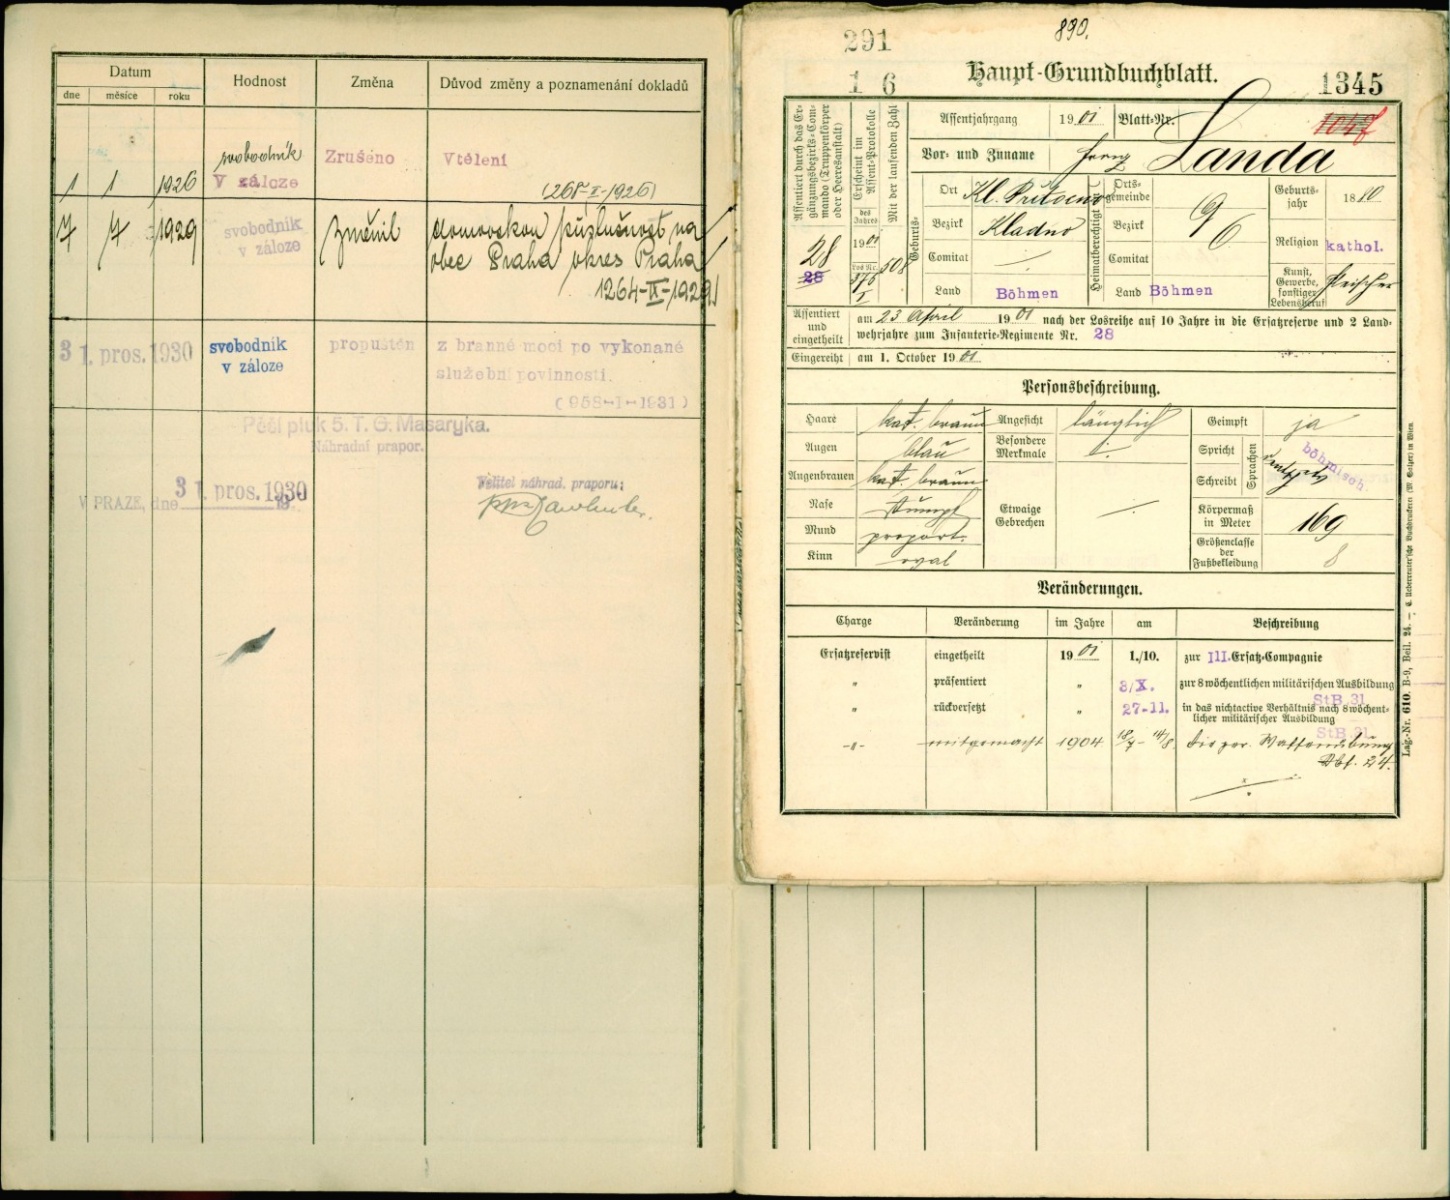 Datum
Hodnost
Změna
Důvod změny a poznamenání dokladů
dne
měsíce
roku
svobodník
Zrušeno
Vtělení
1 1 1926
V záloze
(268-I-1926)
7 7 1929
svobodník
v záloze
změnil
domovskou příslušnost na
obec Praha okres Praha
1264-IX-1929
31. pros. 1930
svobodník
v záloze
propuštěn
z branné moci po vykonané
služební povinnosti.
(958-I-1931)
Pěší pluk 5. T. G. Masaryka.
Náhradní prapor.
V PRAZE, dne
31. pros. 1930
19
Velitel náhrad. praporu:
890.
291
1 6
Haupt-Grundbuchblatt.
1345
Assentiert durch das Er-
gänzungsbezirks-Com-
mando (Truppenkörper
oder Heeresanstalt)
28
28
Erscheint im
Assent-Protokolle
des
Jahres
1901
Los Nr.
176
I
Mit der laufenden Zahl
508
Assentjahrgang
1901
Blatt-Nr.
1047
Vor- und Zuname
Franz Landa
Geburts-
Ort
Kl. Přítočno
Bezirk
Kladno
Comitat
Land
Böhmen
Heimatberechtigt
Orts-
gemeinde
Bezirk
Comitat
Land
Böhmen
Geburts-
jahr
1880
Religion
kathol.
Kunst,
Gewerbe,
sonstiger
Lebensberuf
Fleischer
Assentiert
und
eingetheilt
am 23 April 1901 nach der Losreihe auf 10 Jahre in die Ersatzreserve und 2 Land-
wehrjahre zum Infanterie-Regimente Nr. 28
Eingereiht
am 1. October 1901
Personsbeschreibung.
Haare
kast. braun
Augen
blau
Augenbrauen
kast. braun
Nase
stumpf
Mund
proport.
Kinn
oval
Angesicht
länglich
Besondere
Merkmale
Etwaige
Gebrechen
Geimpft
ja
Spricht
Schreibt
Sprachen
böhmisch.
Körpermaß
in Meter
169
Größenclasse
der
Fußbekleidung
8
Veränderungen.
Charge
Veränderung
im Jahre
am
Beschreibung
Ersatzreservist
eingetheilt
1901
1./10.
zur III. Ersatz-Compagnie
"
präsentiert
"
3/X.
zur 8 wöchentlichen militärischen Ausbildung
StB.31
"
rückversetzt
"
27-11.
in das nichtactive Verhältnis nach 8 wöchent-
licher militärischer Ausbildung
StB.31
-"-
mitgemacht
1904
18/7 - 14/8
die per. Waffenübung
Dbf. 24.
Lag.-Nr. 610. B-9, Beil. 24.